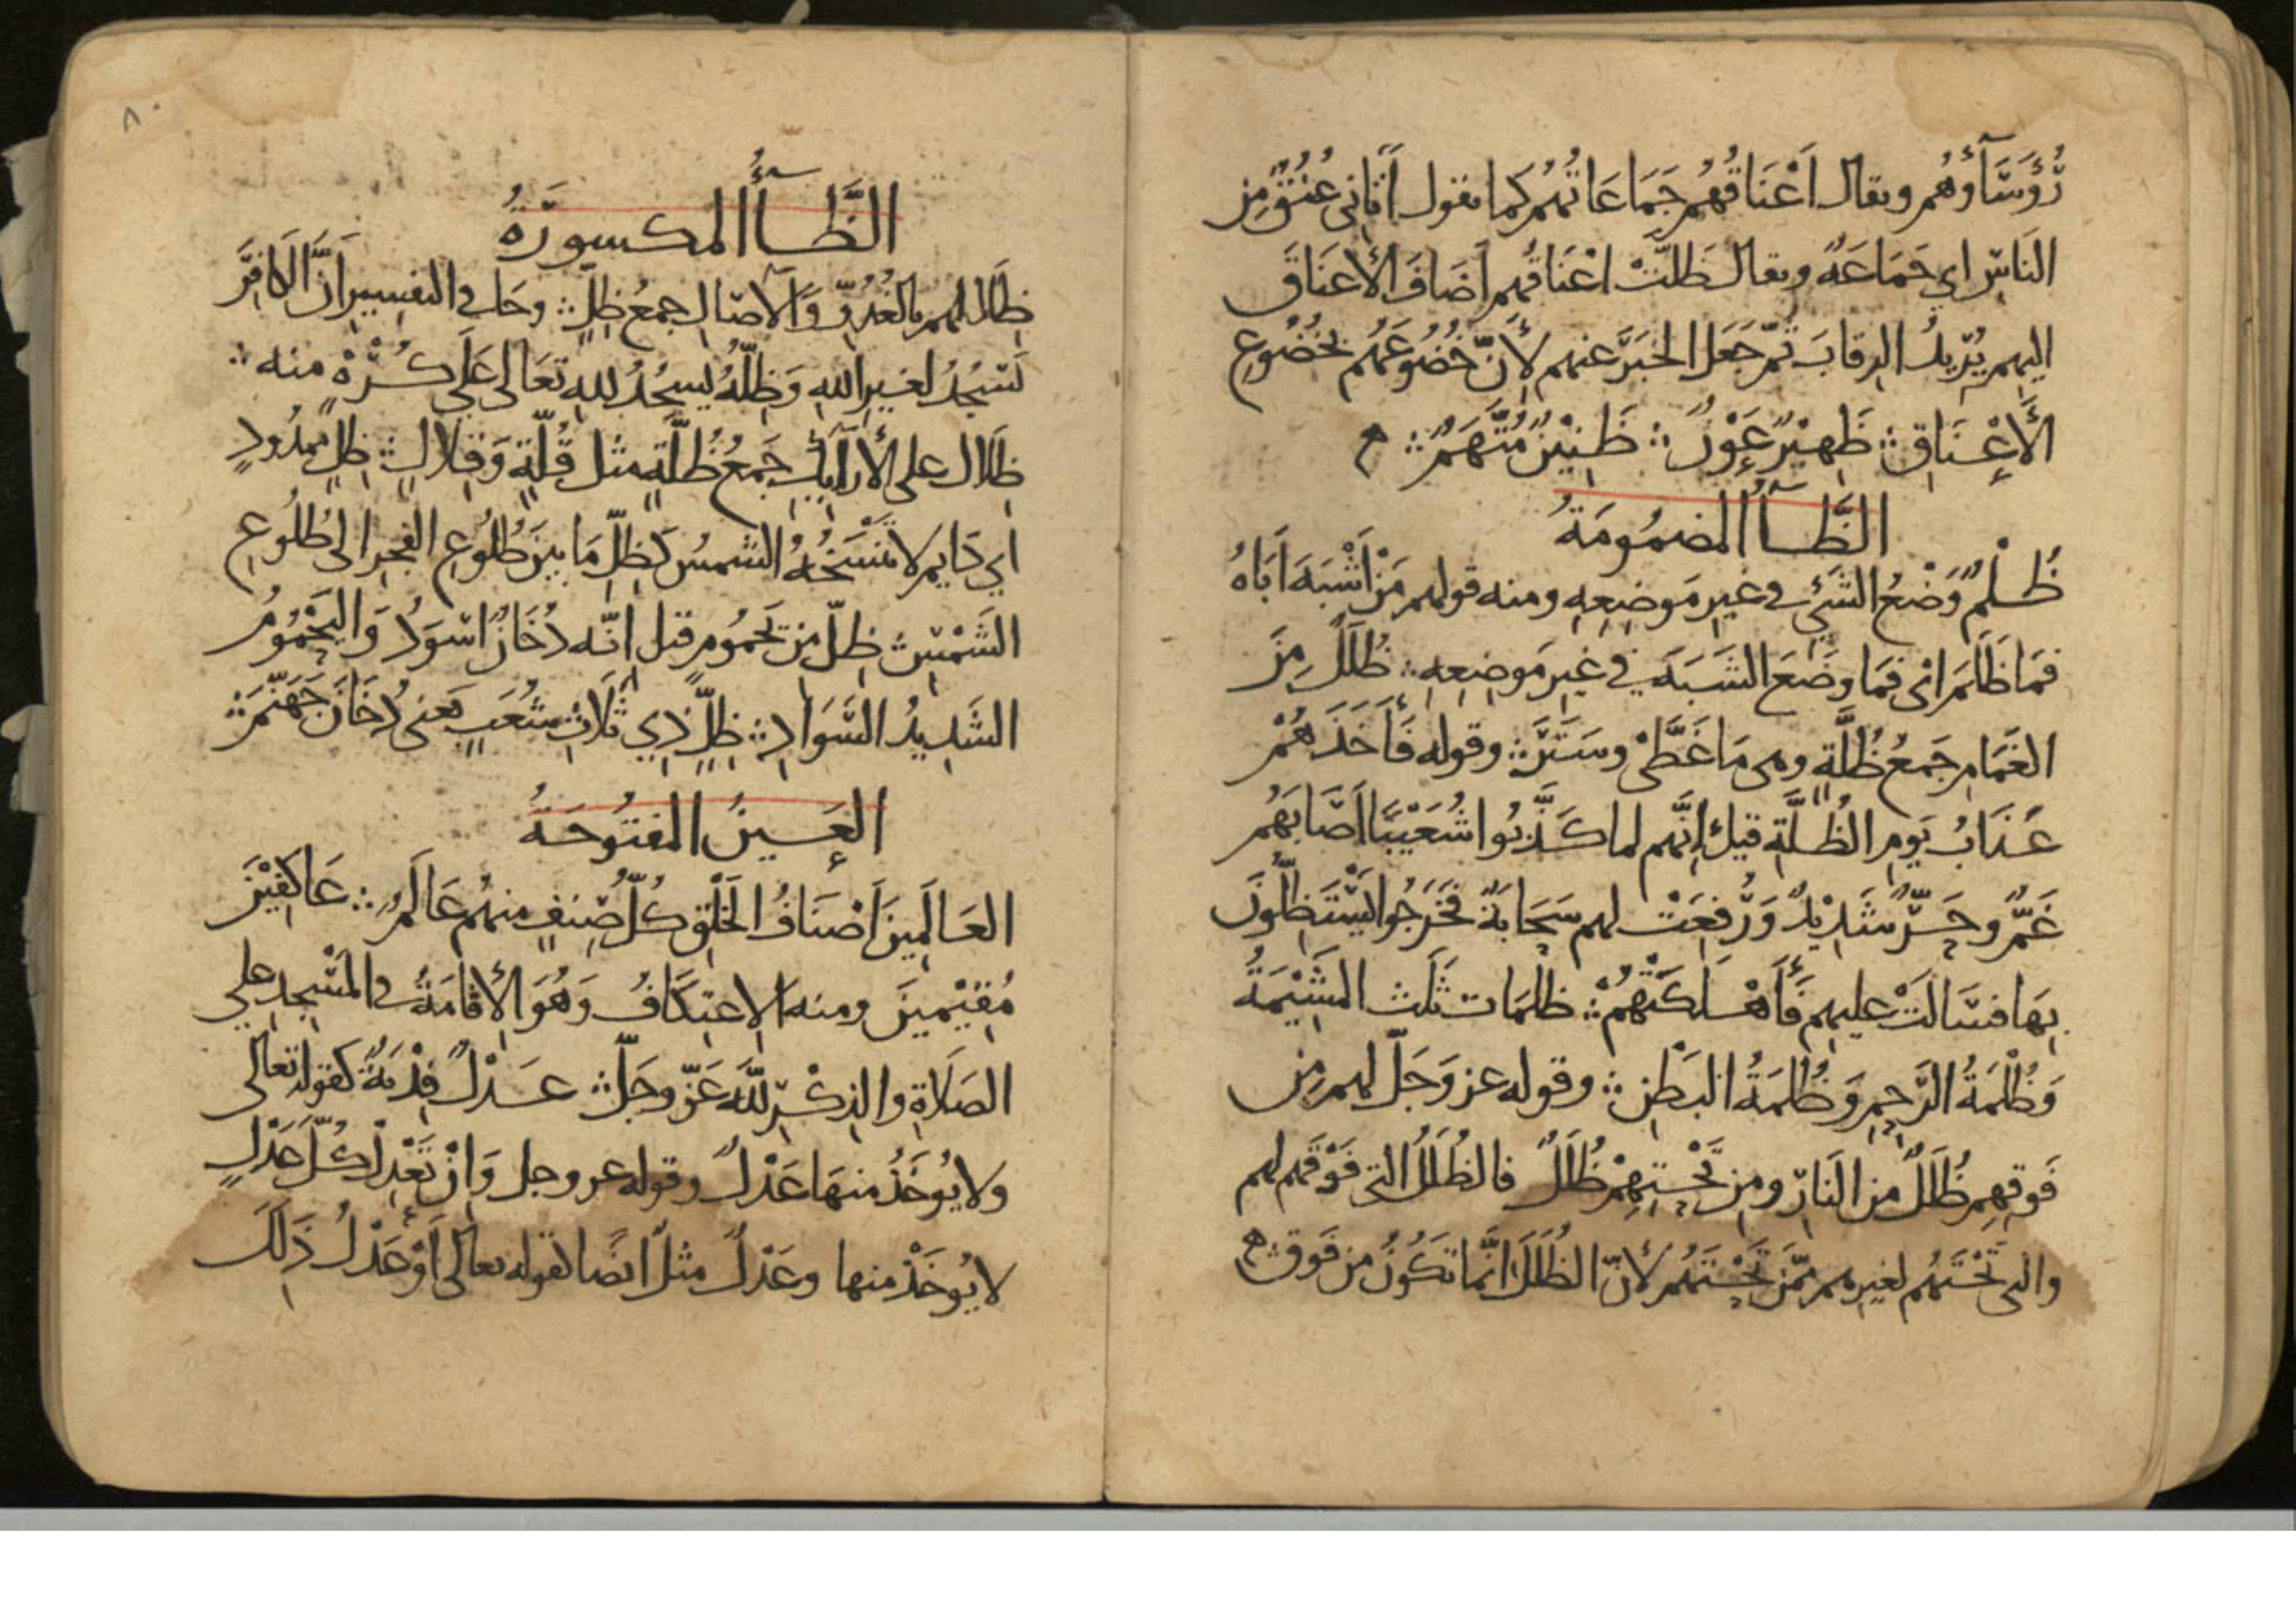 رُؤَسَآؤُهُم ويقال أَعْنَاقُهُم جَمَاعَاتُهُم كما تقول أَتَانِي عُنُقٌ مِن
النَاسِ اي جَمَاعَةٌ ويقال ظَلَّتْ اعْنَاقُهُم أَضَافَ الأَعنَاقَ
اليهم يُرِيدُ الرقابَ ثمّ جَعَل الخبَرَ عنهم لأنّ خُضُوعَهُم بخُضُوعِ
الأَعْنَاقِ ؞ ظَهِيْرٌ عَوْنٌ ؞ ظَنِيْنٌ مُتَّهَمٌ ؞
الظَّآءُ المضمُومَةُ
ظُلْمٌ وَضْعُ الشَيْءِ في غيرِ مَوضِعِهِ ومنه قولهم مَنْ أَشْبَهَ أَبَاهُ
فمَا ظَلَمَ اىْ فمَا وَضَعَ الشَبَهَ في غيرِ مَوضِعِهِ ؞ ظُلَلٌ مِنَ
الغَمَامِ جَمعُ ظُلَّةٍ وهى مَا غَطَّىْ وسَتَرَ ؞ وقوله فَأَخَذَهُمْ
عَذَابُ يَومِ الظُلَّةِ قيل إنَّهم لما كَذَّبُوا شُعَيْبًا أصَابَهُم
غَمٌّ وحَرٌّ شَدِيْدٌ وَرُفِعَتْ لهم سَحَابَةٌ فخَرَجُوا يَسْتَظِلّونَ
بِهَا فسَالَتْ عليهم فَأَهْلَكَتْهُمْ ؞ ظلمَات ثَلَث المشِيْمَةُ
وَظُلْمَةُ الرَحِمِ وَظُلمَةُ البَطنِ ؞ وقوله عز وَجَلّ لهم مِن
فَوقِهِم ظُلَلٌ من النَارِ ومِن تَحْتِهِمْ ظُلَلٌ فالظُلَلُ التى فَوْقَهم لهم
والتى تَحْتَهُم لغيرهم ممَّن تَحْتَهُم لأنّ الظُلَلَ انَّما تكُونُ من فَوق ؞
٨٠
الظَّآءُ المكسورَةُ
ظِلَالهم بالغُدُوِّ وَالآصَالِ جمعُ ظِلٍّ ؞ وجَا في التفسير أنَّ الكَافِرَ
يَسْجُدُ لغيرِ اللهِ وَظِلُّهُ يَسجُدُ للهِ تعَالى عَلَى كُرْهٍ منه ؞
ظِلَال على الأَرَآئِكِ جَمعُ ظُلَّةٍ مثل قُلّةٍ وَقِلَالٍ ؞ ظِلٍّ ممدُودٍ
أي دَايم لا تَنْسَخُهُ الشمسُ كَظِلّ مَا بينَ طُلُوعِ الفجرِ الى طُلُوعِ
الشَمْسِ ؞ ظِلٍّ من يَحمُومٍ قيل انّه دُخَانٌ اسْوَدُ وَاليَحْمُومُ
الشَدِيدُ السَّوَادِ ؞ ظِلٍّ ذِي ثَلَاثِ شُعَبٍ يَعنى دُخَانَ جَهَنَّمَ ؞
العَينُ المفتُوحَةُ
العَالَمِينَ أَصْنَافُ الخَلْقِ كُلُّ صِنفٍ منهُم عَالَمٌ ؞ عَاكِفِيْنَ
مُقِيْمينَ ومنه الاعتِكَافُ وَهُوَ الإقامَةُ في المَسْجِدِ علي
الصَلَاةِ والذِكْرِ لِلّهِ عَزّ وجَلّ ؞ عَدْلٌ فِدْيَةٌ كقوله تعالى
ولا يُوخَذُ منهَا عَدْلٌ وقوله عز وجل وَإنْ تَعْدِلْ كُلَّ عَدْلٍ
لا يُوخَذْ منها وعَدْلٌ مثلٌ ايضًا كقوله تعالى أَوْ عَدْلُ ذَلِكَ